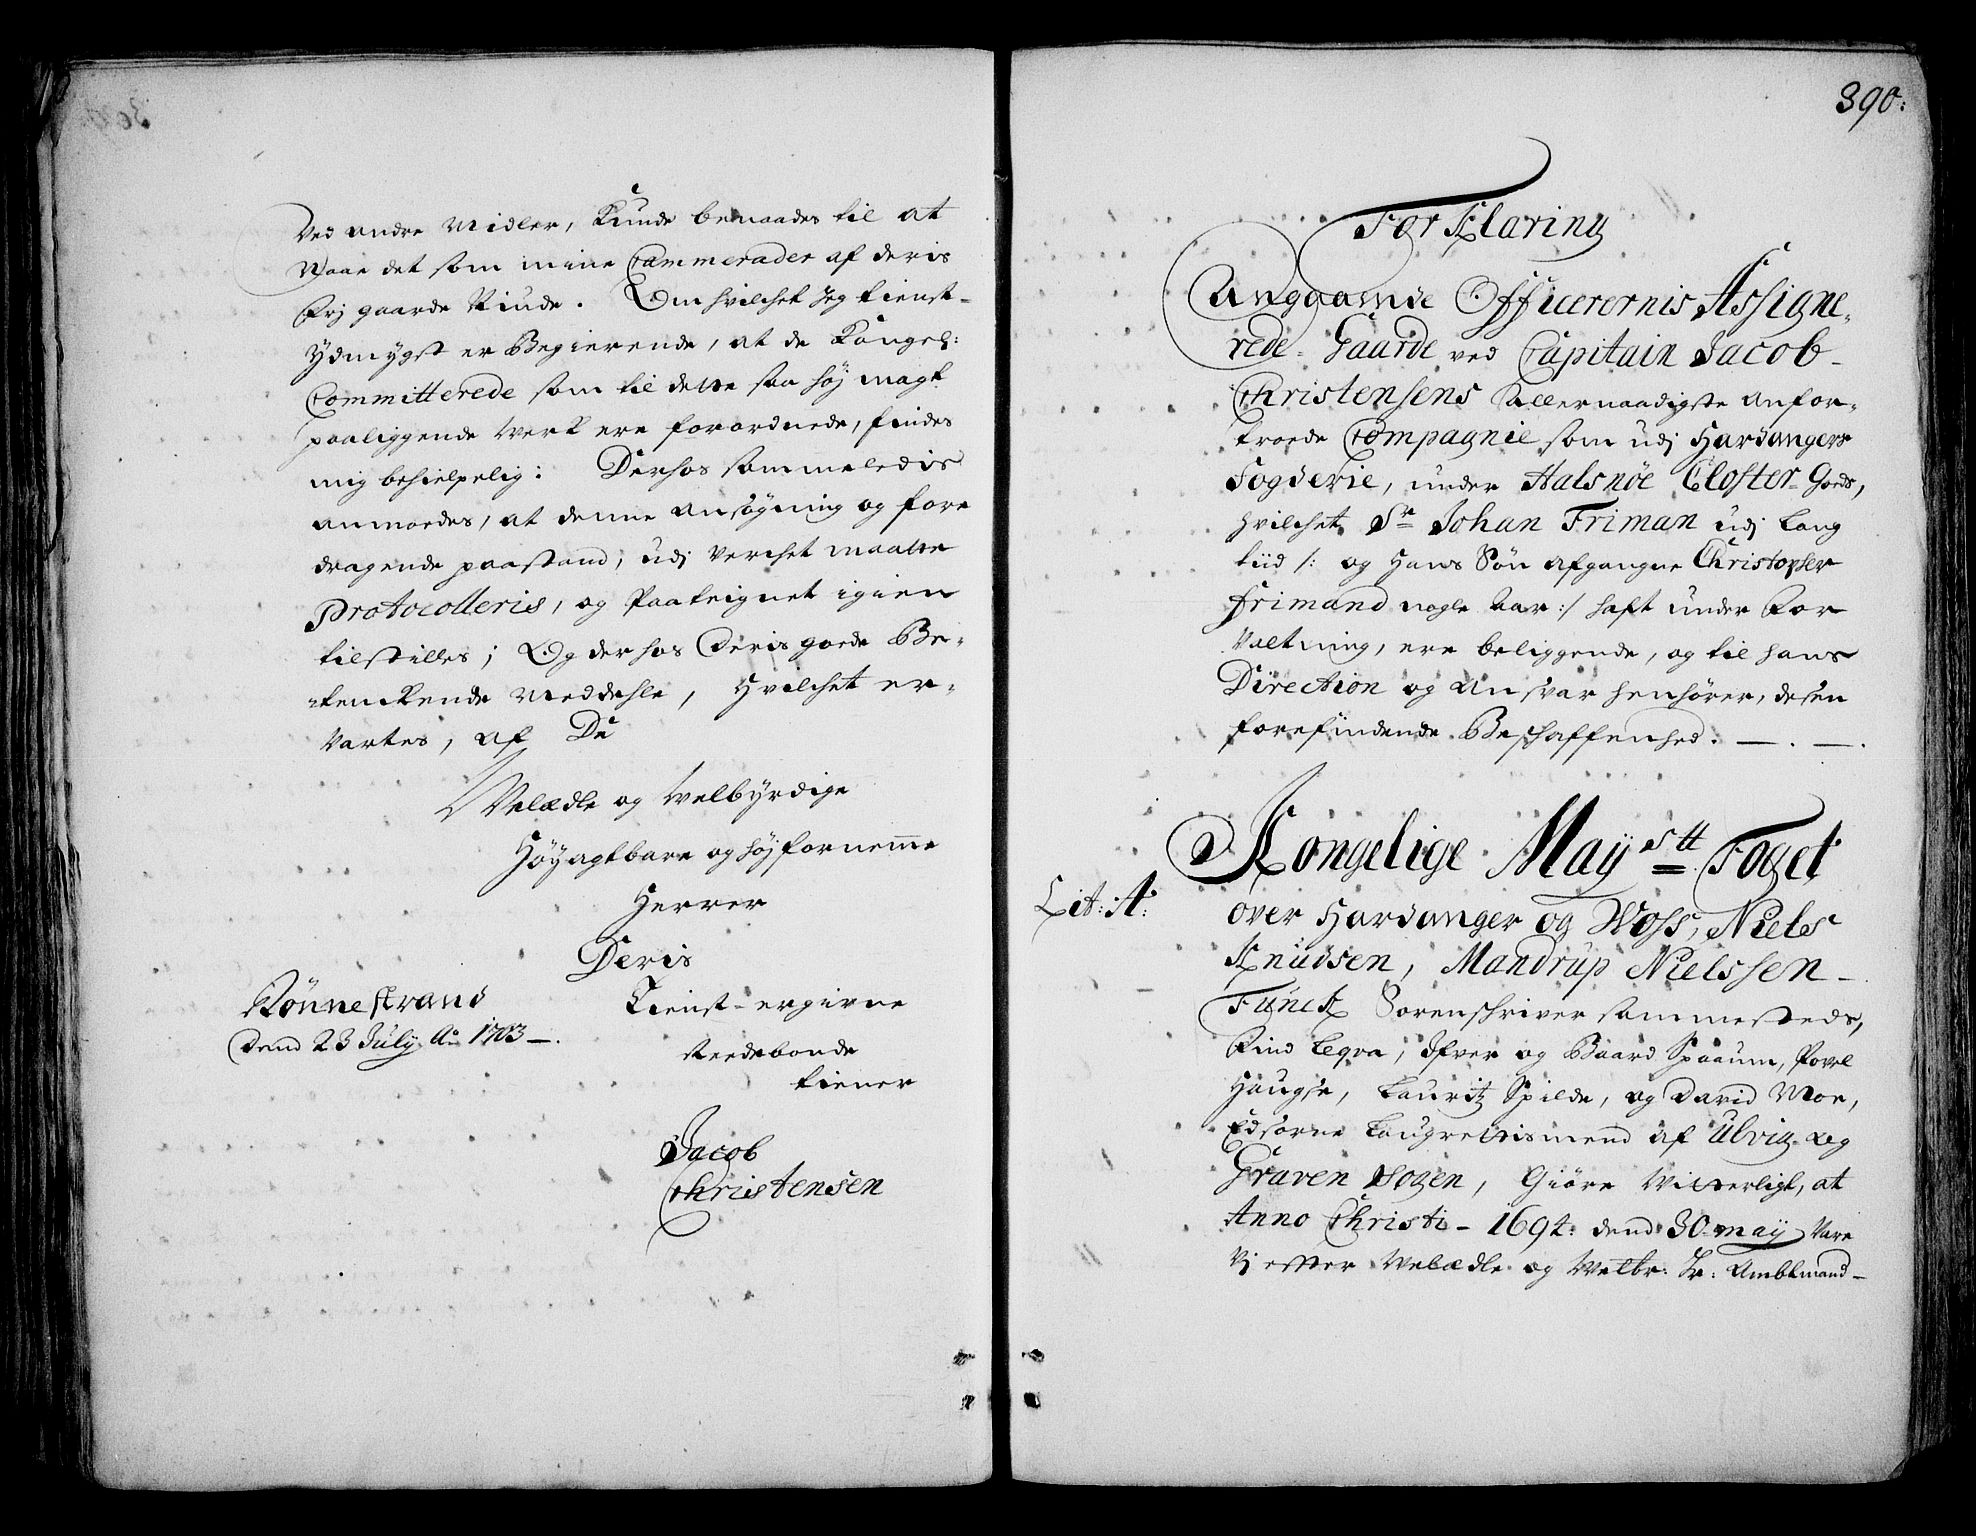 Ved andre Midler, Kunde benaades til at
Naae det som mine Cammerader af deris
Frj gaarde Niude. Om hvilchet Jeg tienst-
Ydmygst er Begierende, at de Kongel:
Committerede som til dette saa høj magt
paaliggende Werk ere forordnede, findes
mig behielpelig: Derhos sammeledis
anmodes, at denne ansøgning og fore
dragende paastand, udj Verchet maatte
Protocolleris, og Paateignet igien
tilstilles; Og derhos Deris goede Be-
tenckende meddehle, Hvilchet er-
Vartes, af De
Velædle og Welbyrdige
Høyagtbare og højfornemme
Herrer
Deris
Rønnestrand
Dend 23 July Ao 1703 —.
Tienst-ergivne
reedebonde
tiener
Jacob
Christensen
390:
ForKlaring
Anggaaende Officerernis Assigne-
rede Gaarde ved Capitain Jacob
Christensens Allernaadigste anfor-
troede Compagnie som udj Hardangers
Fogderie, under Halsnøe Closter Goeds,
hvilchet Sr Johan Friman udj lang
tiid /: og Hans Søn afgangne Christopher
Frimand nogle Aar :/ haft under For
Valtning, ere beliggende, og til hans
Direction og Ansvar henhører, desen
forefindende Beschaffenhed. —.—.
Lit: A:
Kongelige Mayst Foget
over Hardanger og Woss, Niels
Knudsen, Mandrup Nielssen
Funck Sorenschriver sammesteds,
Sr Iver og Baard Spaaum, Povel
Haugse, Lauritz Spilde, og David Moe,
Edsorne Laugrettismend af Ulvig og
Graven Sogen, Giøre Witterligt, at
Anno Christi - 1694: dend 30 may Vare
Vj efter Velædle og Welbr: Hr: Ambtmand-